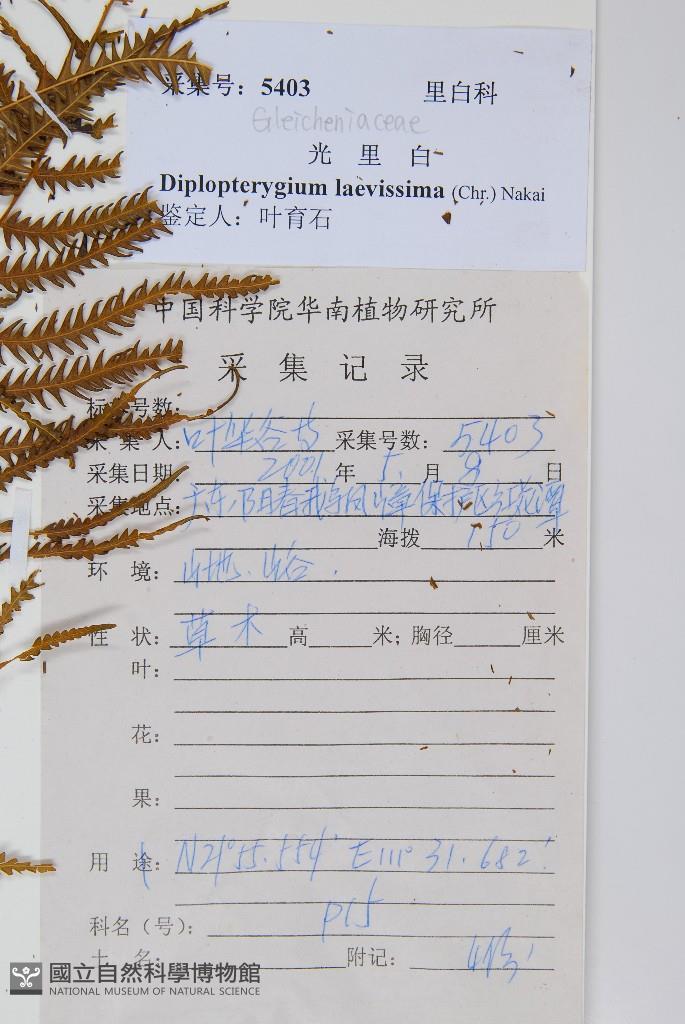 采集号：5403 里白科
Gleicheniaceae
光 里 白
Diplopterygium laevissima (Chr.) Nakai
鉴定人：叶育石
中国科学院华南植物研究所
采 集 记 录
标 号数：
采 集 人：叶华谷 采集号数：5403
采集日期：2001 年 5 月 9 日
采集地点：广东阳春 保护区
海拨 150 米
环 境：山地、山谷.
性 状：草木 高 米；胸径 厘米
叶：
花：
果：
用 途：N21°55.554' E111°31.682'
科名（号）：P15
土 名： 附记：4份
國立自然科學博物館
NATIONAL MUSEUM OF NATURAL SCIENCE